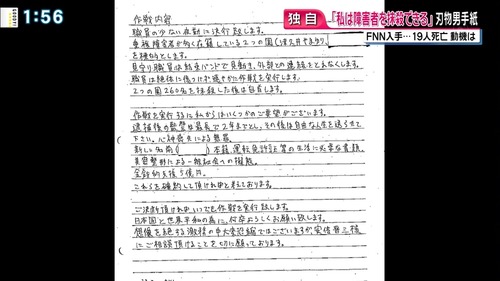 1:56
独自
「私は障害者を抹殺できる」刃物男手紙
FNN入手…19人死亡 動機は
作戦内容
職員の少ない夜勤に決行致します。
重複障害者が多く在籍している2つの園
を標的とします。
見守り職員は結束バンドで見動き、外部との連絡をとれなくします。
職員は絶体に傷つけず速やかに作戦を実行します。
2つの園260名を抹殺した後は自首します。
作戦を実行するに私からはいくつかのご要望がございます。
逮捕後の監禁は最長で2年までとし、その後は自由な人生を送らせて
下さい。心神喪失による無罪。
新しい名前( )本籍、運転免許証等の生活に必要な書類、
美容整形による一般社会への擬態。
金銭的支援5億円。
これらを確約して頂ければと考えております。
ご決断頂ければいつでも作戦を実行致します。
日本国と世界平和の為に何卒よろしくお願い致します。
想像を絶する激務の中大変恐縮ではございますが、安倍晋三様
にご相談頂けることを切に願っております。